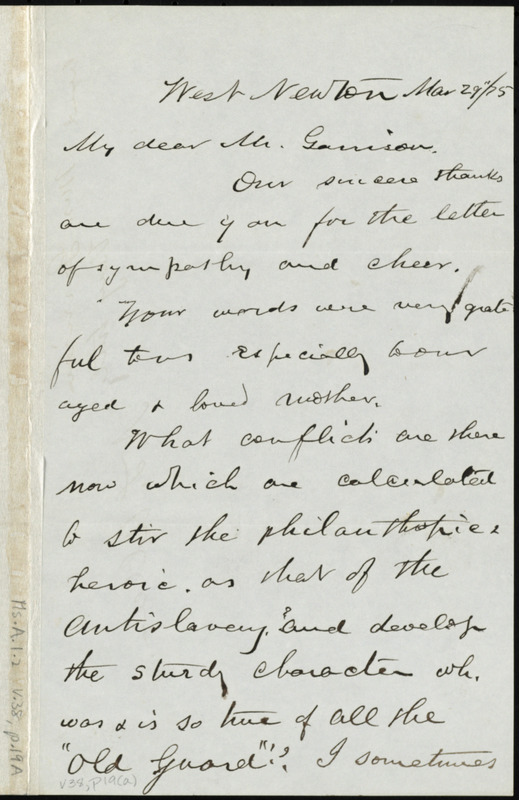 West Newton Mar 29"/75
My dear Mr. Garrison.
Our sincere thanks
are due you for the letter
of sympathy and cheer.
Your words were very grate
ful to us especially to our
aged & loved mother.
What conflicts are there
now which are calculated
to stir the philanthopic &
heroic. as that of the
antislavery, and develop
the sturdy character wh.
was & is so true of all the
"Old Guard"!? I sometimes
Ms.A.1.2 v.38, p.19A
v38, p19(a)